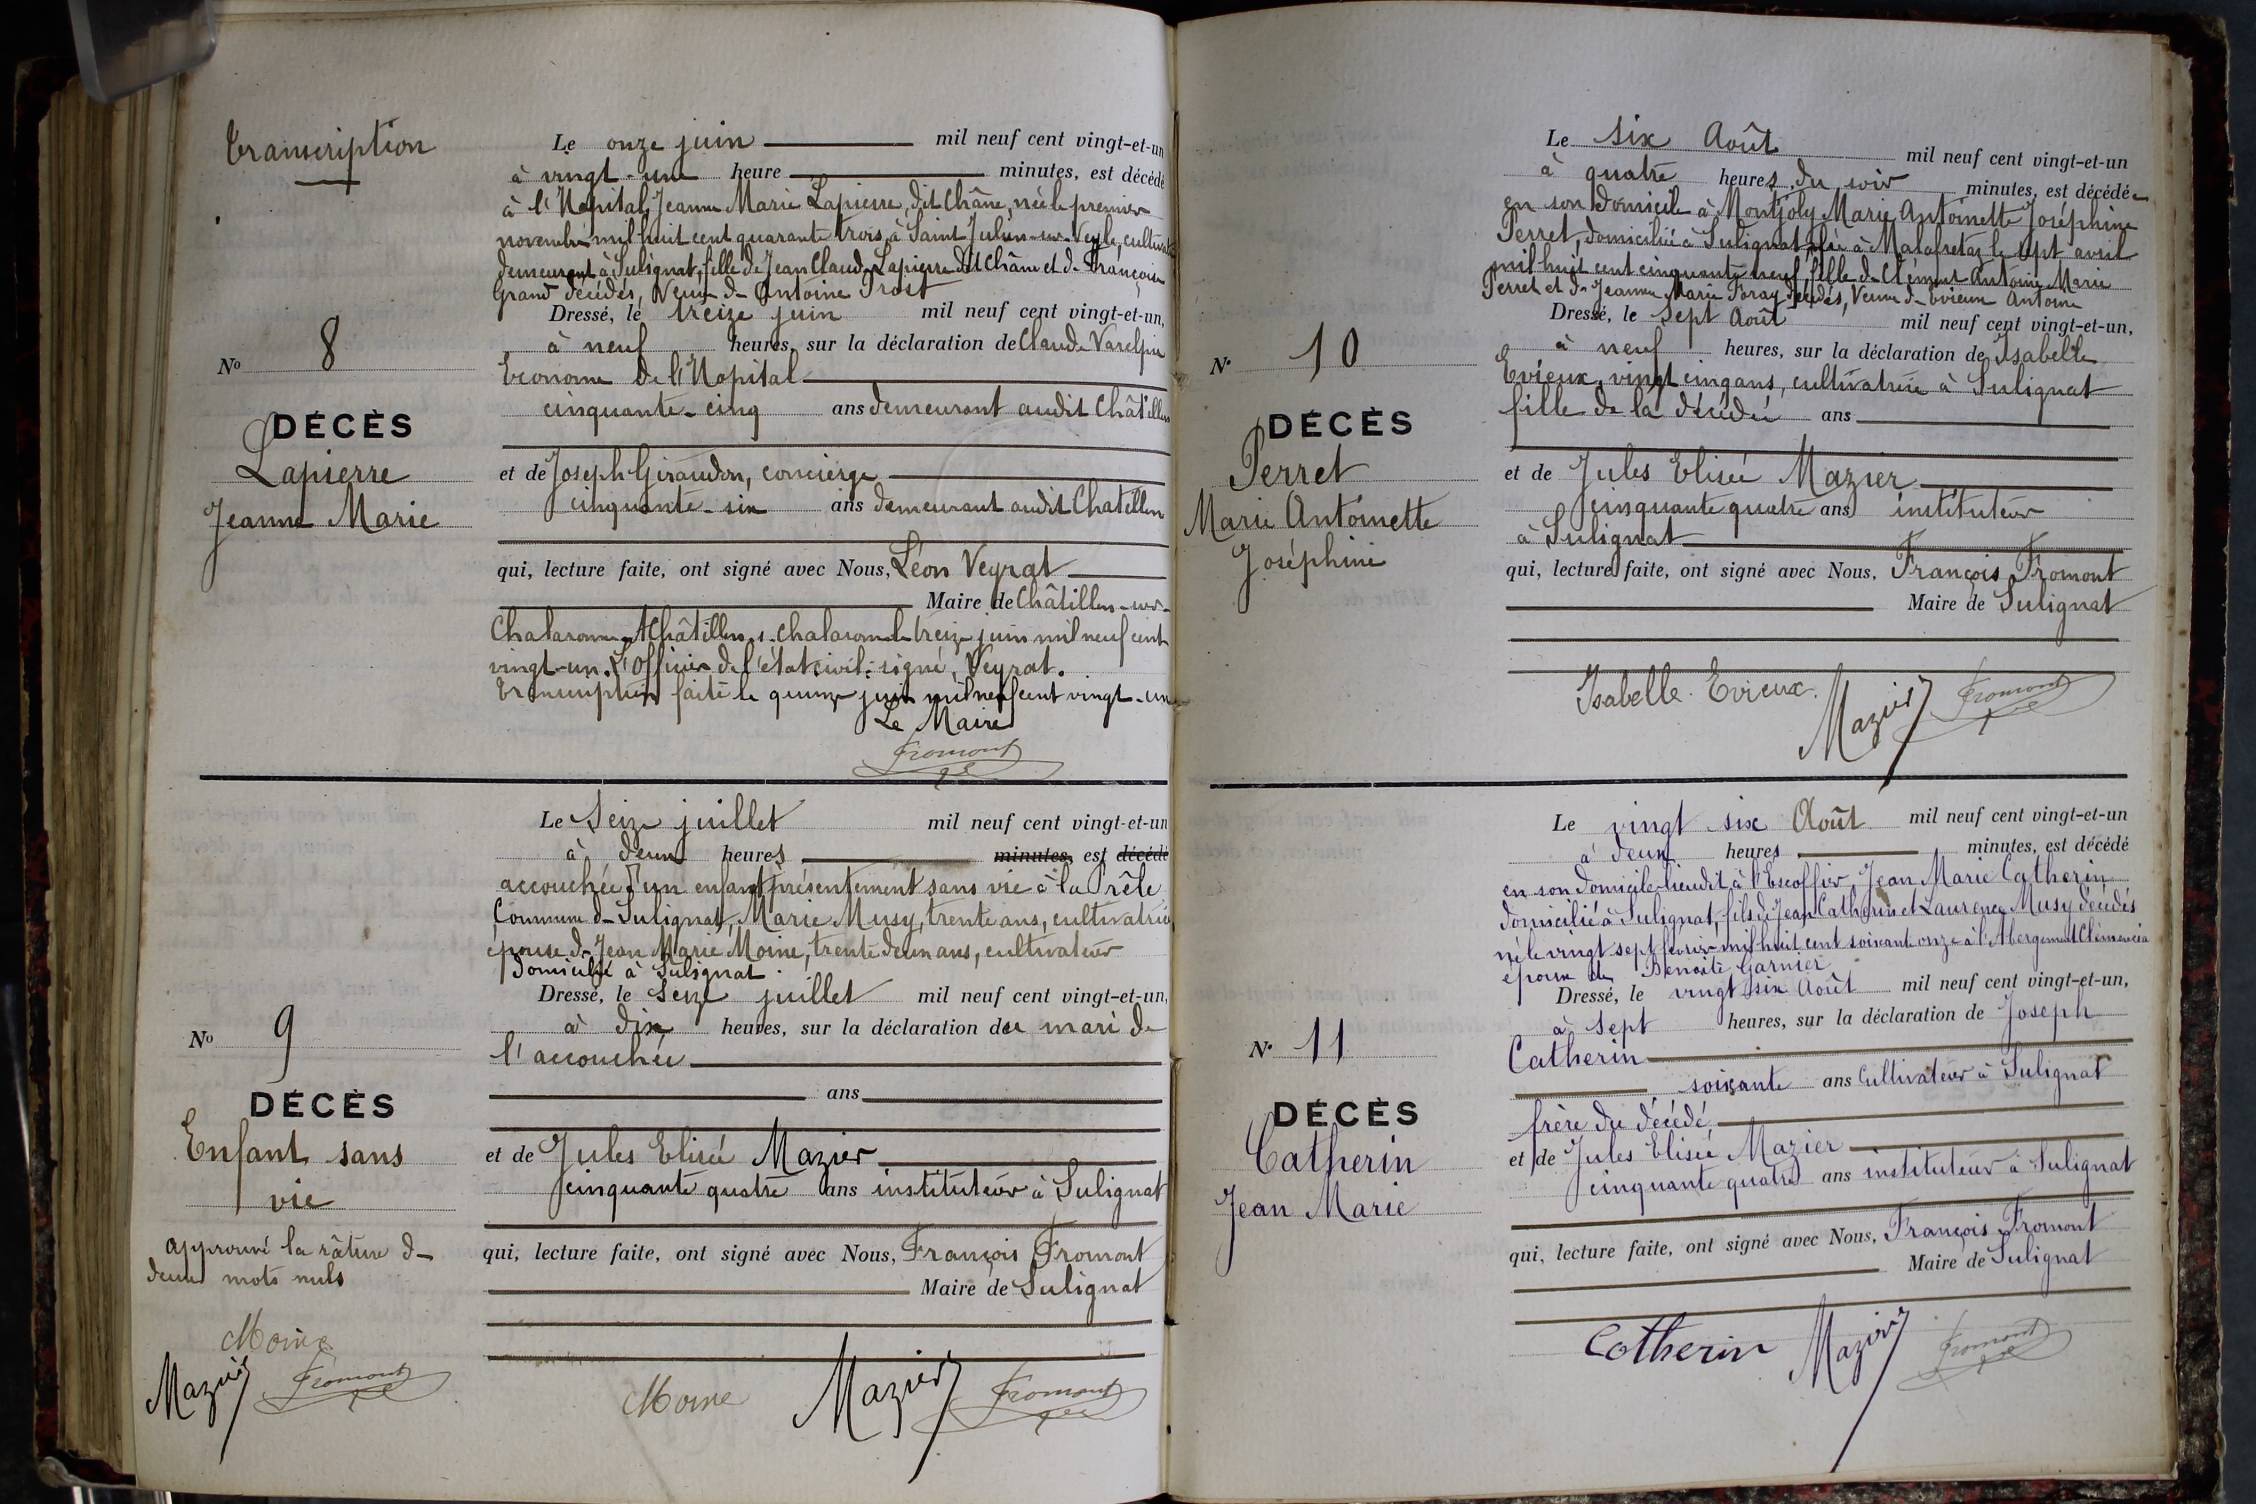 Transcription
Le onze juin mil neuf cent vingt-et-un
à vingt-une heure minutes, est décédé
à l'Hopital, Jeanne Marie Lapierre, dit Châne, née le premier
novembre mil huit cent quarante trois, à Saint Julien-sur-Veyle, cultivat
demeurant à Sulignat, fille de Jean Claude Lapierre dit Châne et de Françoise
Grand décédés, Veuve de Antoine Prost
Dressé, le treize juin mil neuf cent vingt-et-un,
à neuf heures, sur la déclaration de Claude
Econome de l'Hopital
cinquante-cinq ans demeurant audit Châtillon
et de Joseph Giraudon, concierge
cinquante-six ans demeurant audit Chatillon
qui, lecture faite, ont signé avec Nous, Léon Veyrat
Maire de Châtillon-sur-
Chalaronne. A Châtillon s. Chalaronne le treize juin mil neuf cent
vingt-un. L'Officier de l'état civil: signé, Veyrat.
Transcription faite le quinze juin mil neuf cent vingt-un
Le Maire
Fromont
No 8
DÉCÈS
Lapierre
Jeanne Marie
Le Seize juillet mil neuf cent vingt-et-un
à deux heures minutes, est décédé
accouchée d'un enfant présentement sans vie à la Prêle
Commune de Sulignat, Marie Musy, trente ans, cultivatrice
épouse de Jean Marie Moine, trente deux ans, cultivateur
domicilié à Sulignat.
Dressé, le Seize juillet mil neuf cent vingt-et-un,
à dix heures, sur la déclaration du mari de
l'accouchée
ans
et de Jules Elisée Mazier
cinquante quatre ans instituteur à Sulignat
qui, lecture faite, ont signé avec Nous, François Fromont
Maire de Sulignat
Moine Mazier Fromont
No 9
DÉCÈS
Enfant sans
vie
approuvé la râture de
deux mots nuls
Moine
Mazier Fromont
Le six Août mil neuf cent vingt-et-un
à quatre heures du soir minutes, est décédée
en son domicile à Montjoly Marie Antoinette Joséphine
Perret, domiciliée à Sulignat, née à Malafretaz le sept avril
mil huit cent cinquante neuf, fille de Clément Antoine Marie
Perret et de Jeanne Marie Foray décédés, Veuve de Evieux Antoine
Dressé, le sept Août mil neuf cent vingt-et-un,
à neuf heures, sur la déclaration de Isabelle
Evieux, vingt cinq ans, cultivatrice à Sulignat
fille de la décédée ans
et de Jules Elisée Mazier
cinquante quatre ans instituteur
à Sulignat
qui, lecture faite, ont signé avec Nous, François Fromont
Maire de Sulignat
Isabelle Evieux. Mazier Fromont
N° 10
DÉCÈS
Perret
Marie Antoinette
Joséphine
Le vingt six Août mil neuf cent vingt-et-un
à deux heures minutes, est décédé
en son domicile lieudit à l'Escoffier Jean Marie Catherin
domicilié à Sulignat, fils de Jean Catherin et Laurence Musy décédés
né le vingt sept février mil huit cent soixante onze à l'Abergement Clémencia
époux de Benoîte Garnier
Dressé, le vingt six Août mil neuf cent vingt-et-un,
à sept heures, sur la déclaration de Joseph
Catherin
soixante ans Cultivateur à Sulignat
frère du décédé
et de Jules Elisée Mazier
cinquante quatre ans instituteur à Sulignat
qui, lecture faite, ont signé avec Nous, François Fromont
Maire de Sulignat
Catherin Mazier Fromont
N° 11
DÉCÈS
Catherin
Jean Marie